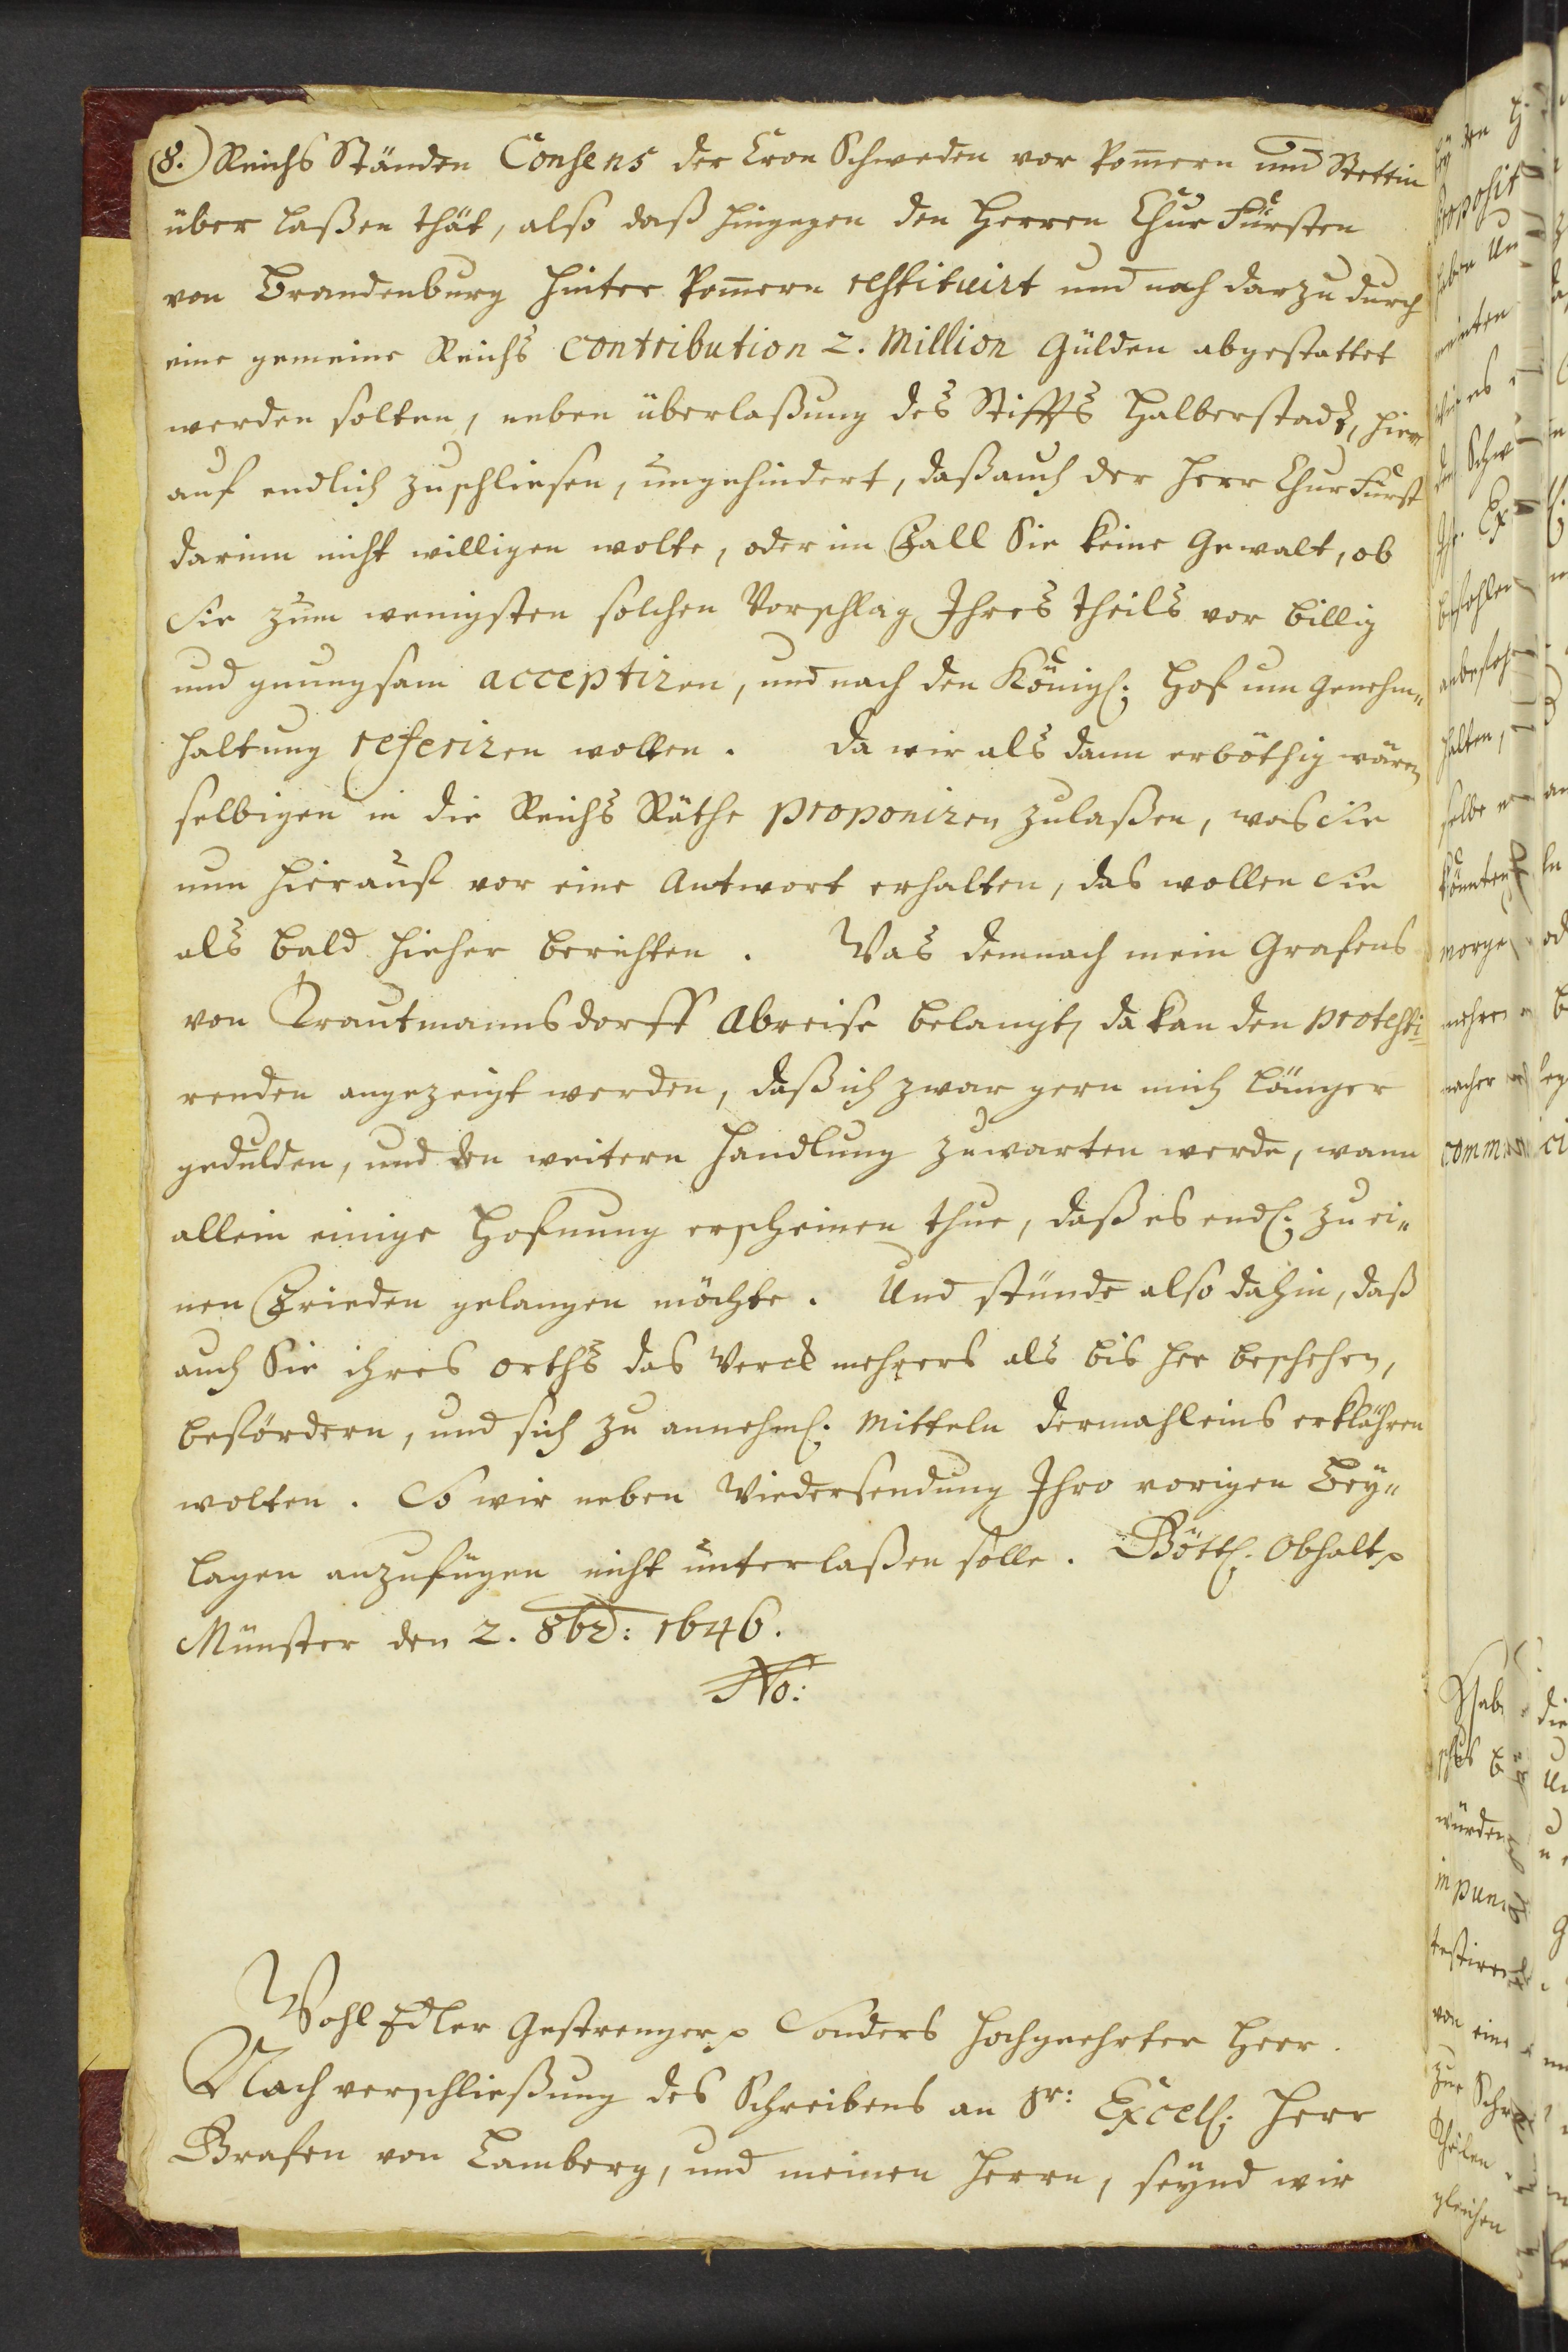 (8.) Reichs Ständen Consens der Cron Schweden vor Pom̄ern und Stettin
über laßen thät, also daß hingegen den Herren ChurFürsten
von Brandenburg hinter Pom̄ern restituirt und noch darzu durch
eine gemeine Reichs contribution 2. Million Gülden abgestattet
werden solten, neben überlaßung des Stiffts Halberstadt, hier
auf endlich zuschliesen, ungehindert, daß auch der Herr ChurFürst
darinn nicht willigen wolte, oder im Fall Sie keine Gewalt, ob
Sie zum wenigsten solchen Vorschlag Ihres theils vor billig
und gnungsam acceptiren, und nach den Königl: Hof um Genehm„
haltung referiren wolten. Da wir als dann erböthig wären
selbigen in die Reichs Räthe proponiren zulaßen, was Sie
nun hierauf vor eine Antwort erhalten, das wollen Sie
als bald hieher berichten. Was demnach mein Grafens
von Trautmannsdorff Abreise belangt, da kan den protesti=
renden angezeigt werden, daß ich zwar gern mich länger
gedulden, und den weitern Handlung zuwarten werde, wann
allein einige Hofnung erscheinen thue, daß es endl: zu ei„
nen Frieden gelangen möchte. Und stünde also dahin, daß
auch Sie ihres orths das Werck mehrers als bis her beschehen,
befördern, und sich zu annehml: Mitteln dermahleins erklähren
wolten. So wir neben Wiedersendung Ihro vorigen Bey„
lagen anzufügen nicht unterlaßen solle. Göttl: Obhalt p
Münster den 2. 8br: 1646.
No:
Wohl Edler Gestrenger p Sonders hochgeehrter Herr.
Nach verschließung des Schreibens an Sr: Excell: Herr
Grafen von Lamberg, und meinen Herrn, seynd wir